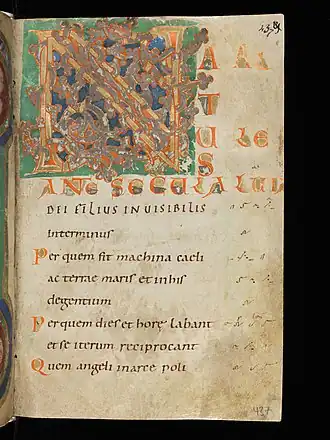 N
A
T
U
S
ANTE SECULA
DEI FILIUS INUISIBILIS
interminus
Per quem fit machina caeli
ac terrae maris et in his
degentium
Per quem dies et horę labant
et se iterum reciprocant
Quem angeli in arce poli
437